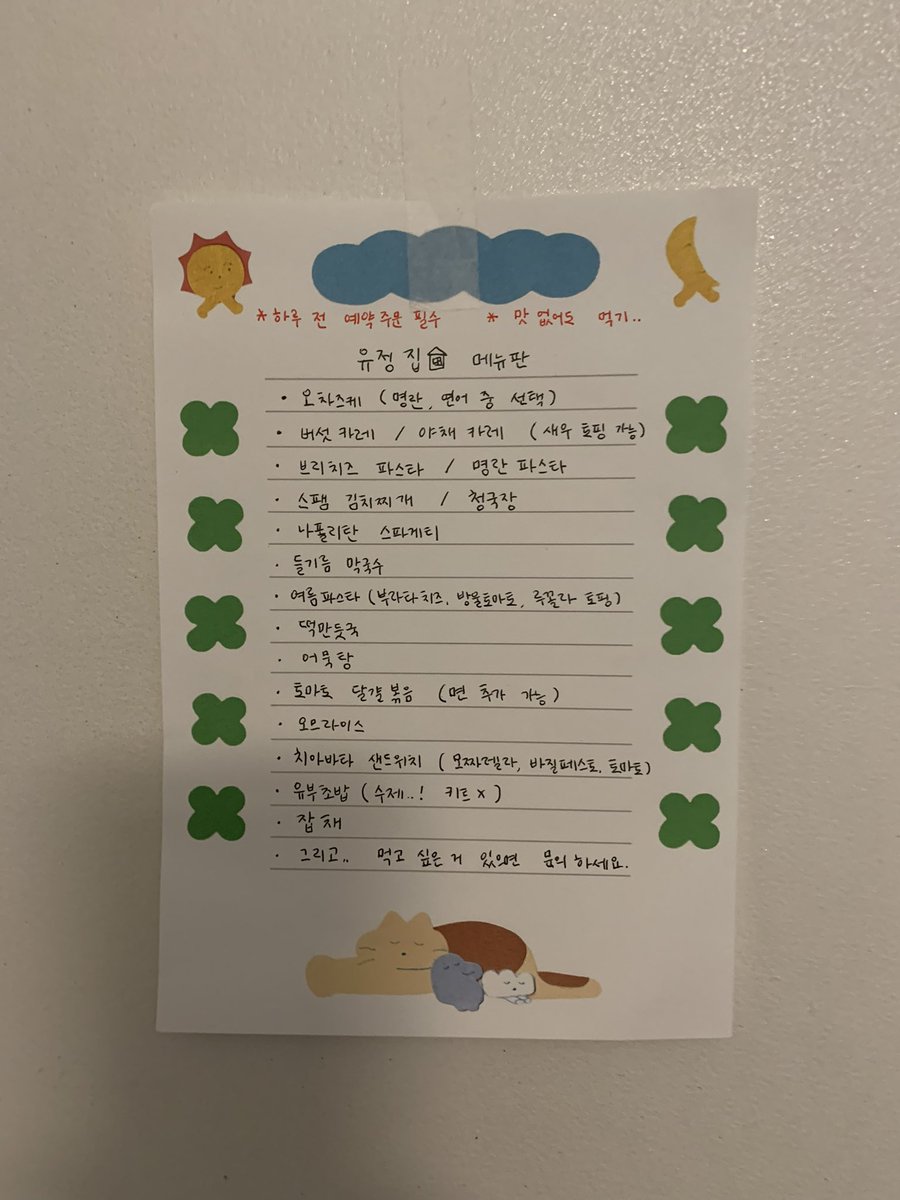 *하루 전 예약주문 필수 * 맛 없어도 먹기..
유정 집 메뉴판
· 오차즈케 (명란, 연어 중 선택)
· 버섯 카레 / 야채 카레 (새우 토핑 가능)
· 브리치즈 파스타 / 명란 파스타
· 스팸 김치찌개 / 청국장
· 나폴리탄 스파게티
· 들기름 막국수
· 여름파스타 (부라타치즈, 방울토마토, 루꼴라 토핑)
· 떡만둣국
· 어묵탕
· 토마토 달걀볶음 (면 추가 가능)
· 오므라이스
· 치아바타 샌드위치 (모짜렐라, 바질페스토, 토마토)
· 유부초밥 (수제..! 키트 x)
· 잡채
· 그리고.. 먹고 싶은 거 있으면 문의 하세요.